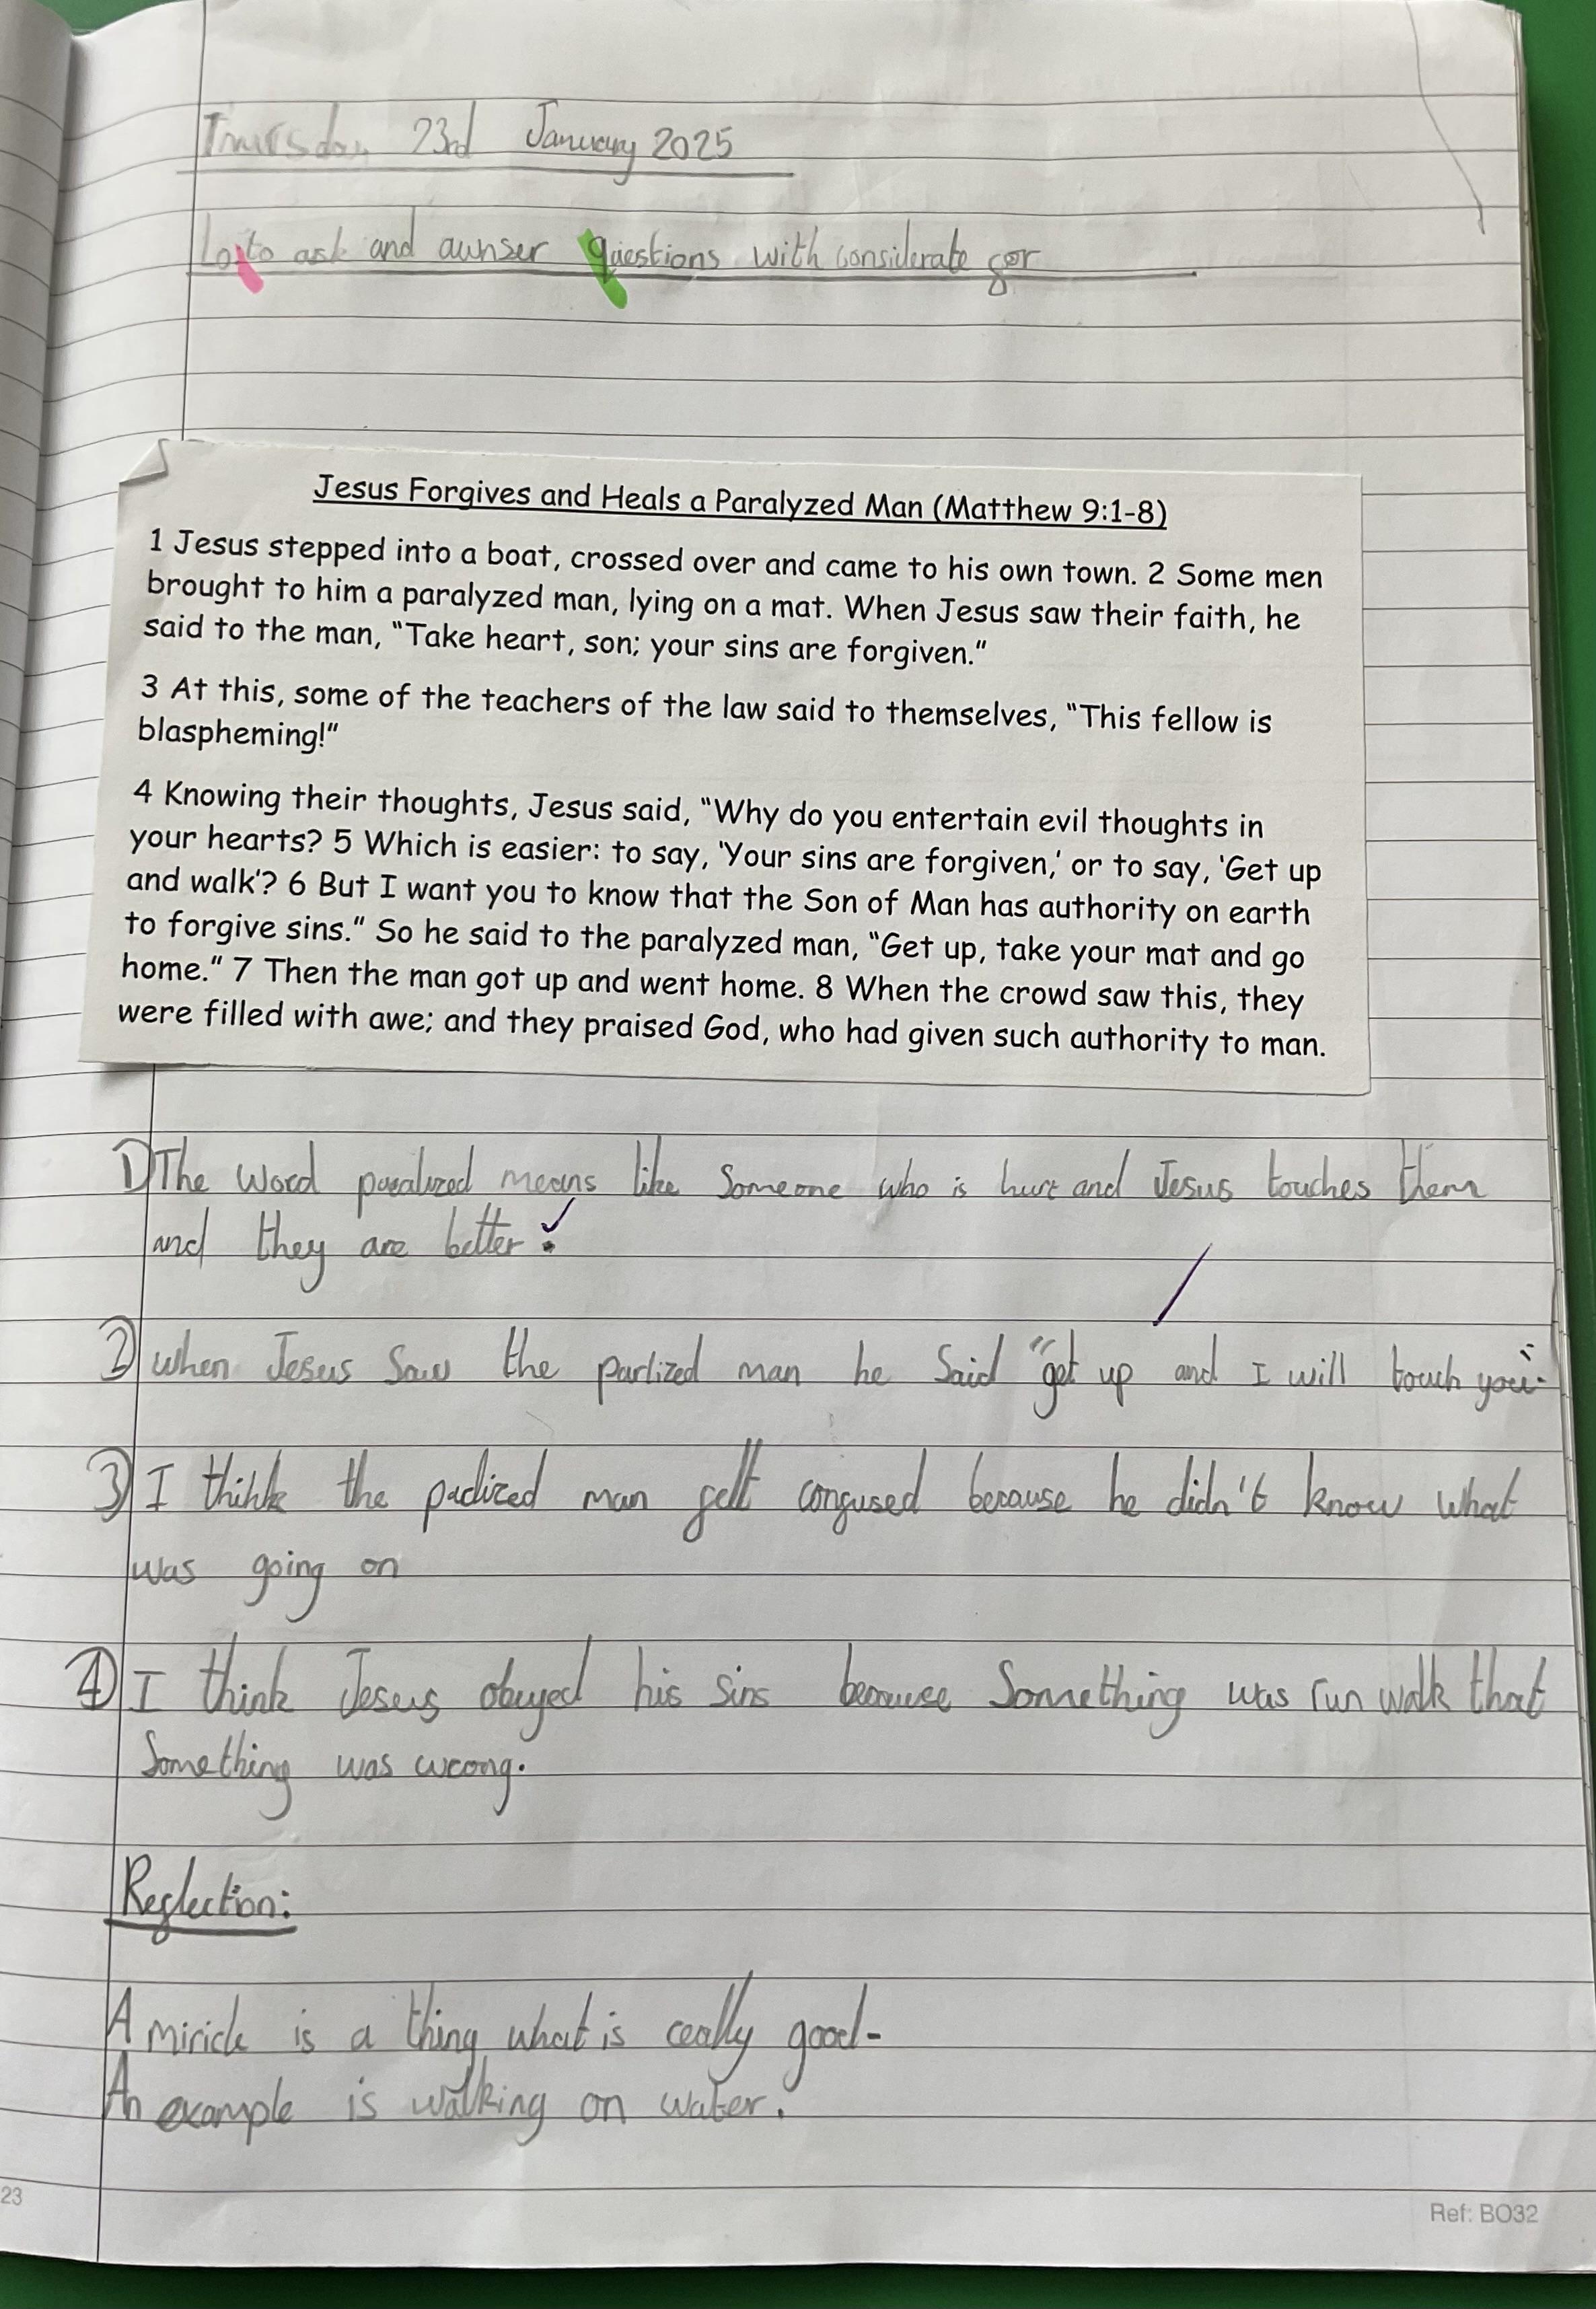 Thursday 23rd January 2025
Lo to ask and awnser questions with considerate for
Jesus Forgives and Heals a Paralyzed Man (Matthew 9:1-8)
1 Jesus stepped into a boat, crossed over and came to his own town. 2 Some men
brought to him a paralyzed man, lying on a mat. When Jesus saw their faith, he
said to the man, “Take heart, son; your sins are forgiven.”
3 At this, some of the teachers of the law said to themselves, “This fellow is
blaspheming!”
4 Knowing their thoughts, Jesus said, “Why do you entertain evil thoughts in
your hearts? 5 Which is easier: to say, ‘Your sins are forgiven,’ or to say, ‘Get up
and walk’? 6 But I want you to know that the Son of Man has authority on earth
to forgive sins.” So he said to the paralyzed man, “Get up, take your mat and go
home.” 7 Then the man got up and went home. 8 When the crowd saw this, they
were filled with awe; and they praised God, who had given such authority to man.
1) The word paralized means like someone who is hurt and Jesus touches them
and they are better.
2) when Jesus saw the parlized man he said "get up and I will touch you".
3) I think the parlized man felt confused because he didn't know what
was going on
4) I think Jesus obeyed his sins because something was run walk that
something was wrong.
Reflection:
A miricle is a thing what is really good.
An example is walking on water.
23
Ref: BO32